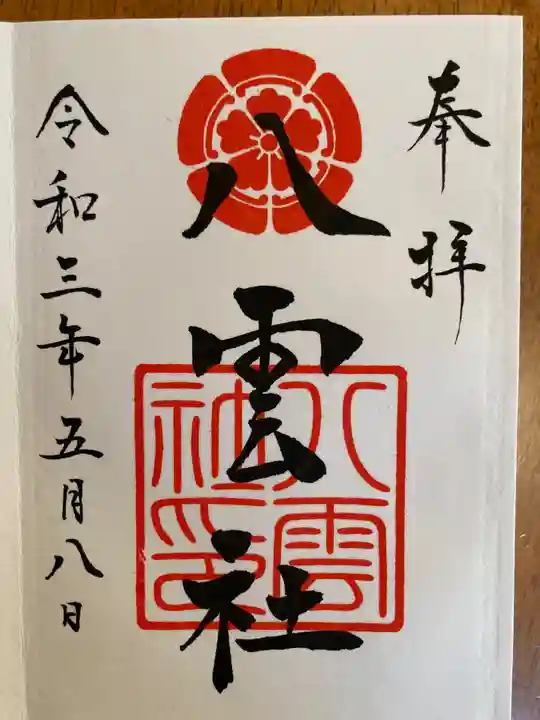 奉拝
八雲社
八雲社印
令和三年五月八日